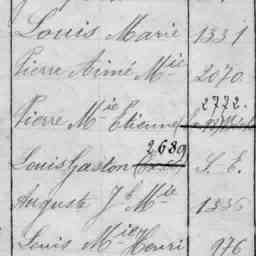 Louis Marie 1331
Pierre Aimé Mie 2070
2772.
Pierre Mie Etienne
2689
Louis Gaston S. E.
Auguste Jh Mie 1336
Louis Mie Henri 976